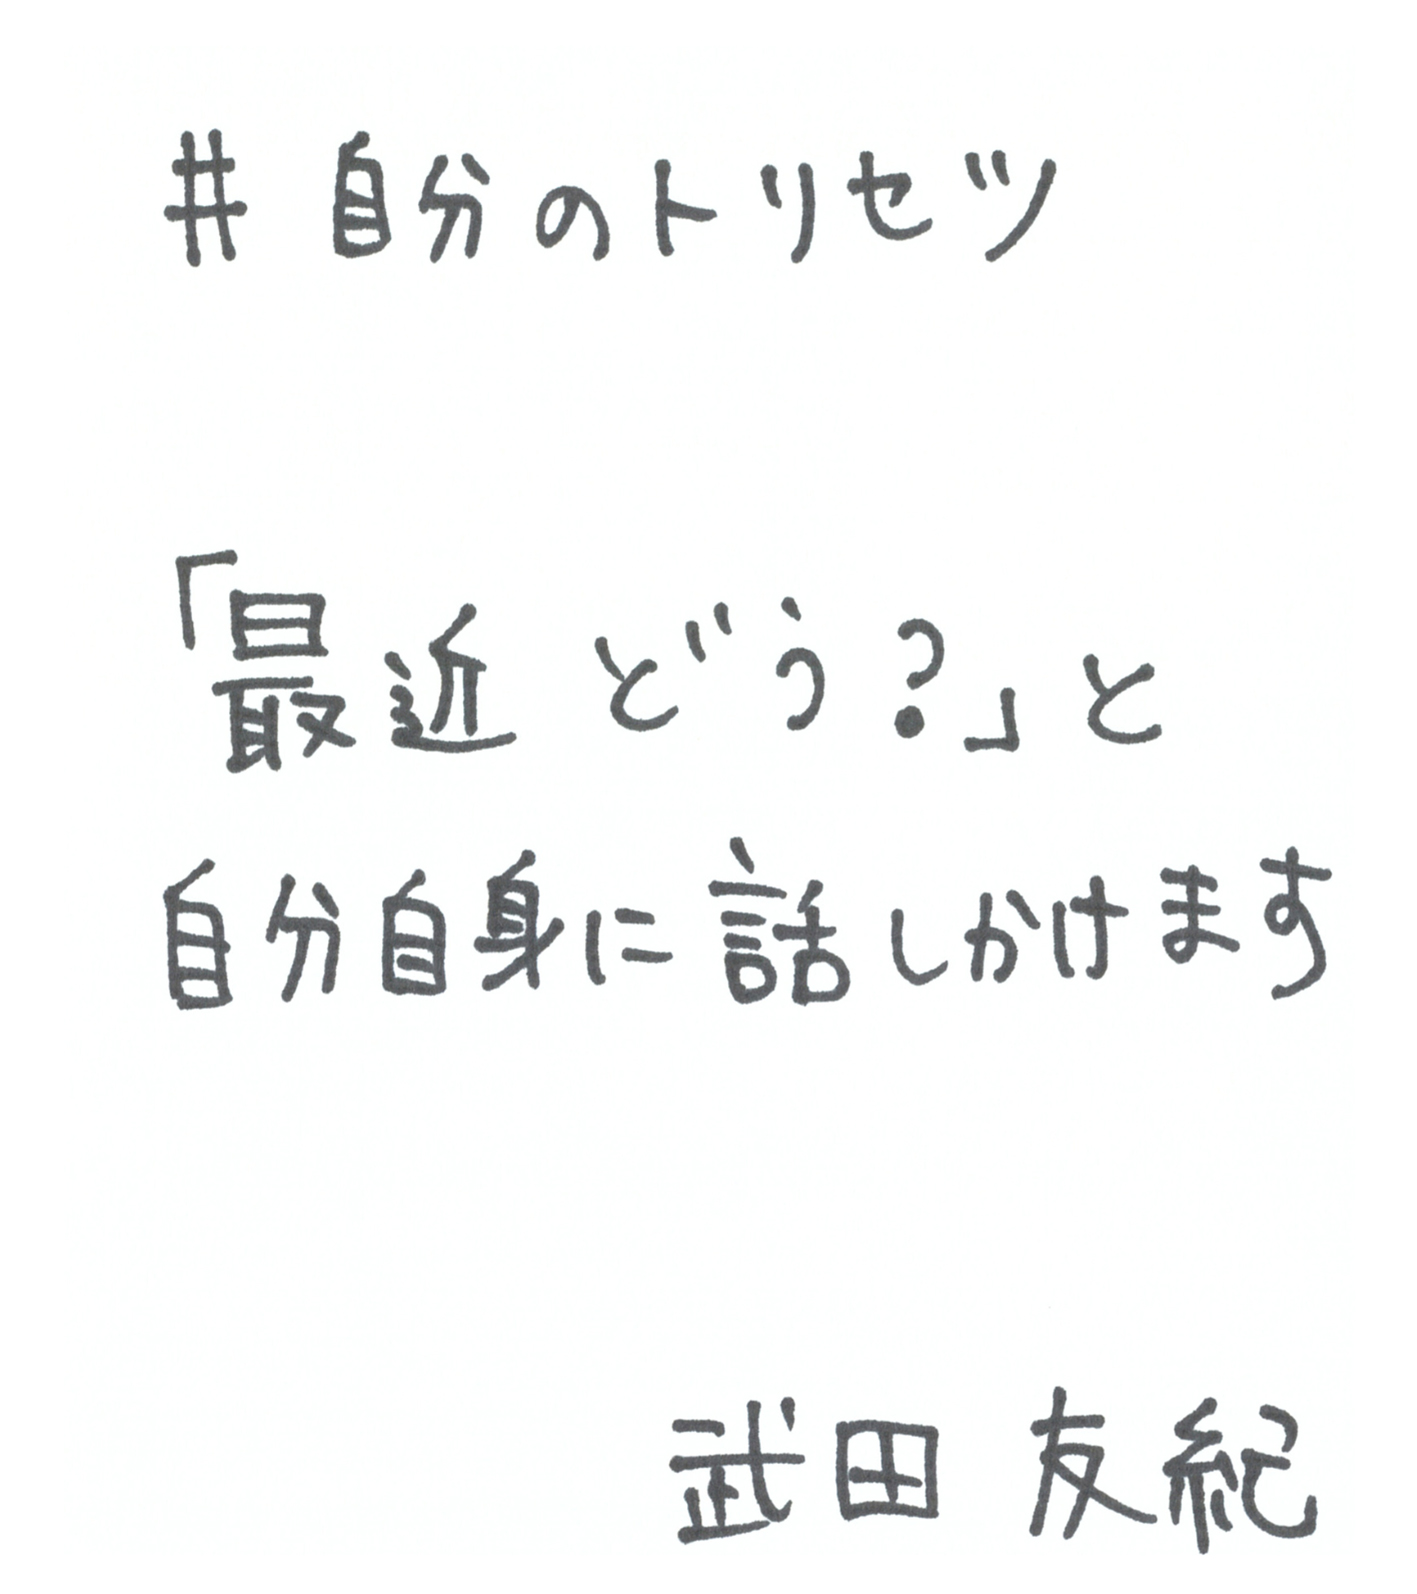 # 自分のトリセツ
「最近どう?」と
自分自身に話しかけます
武田 友紀